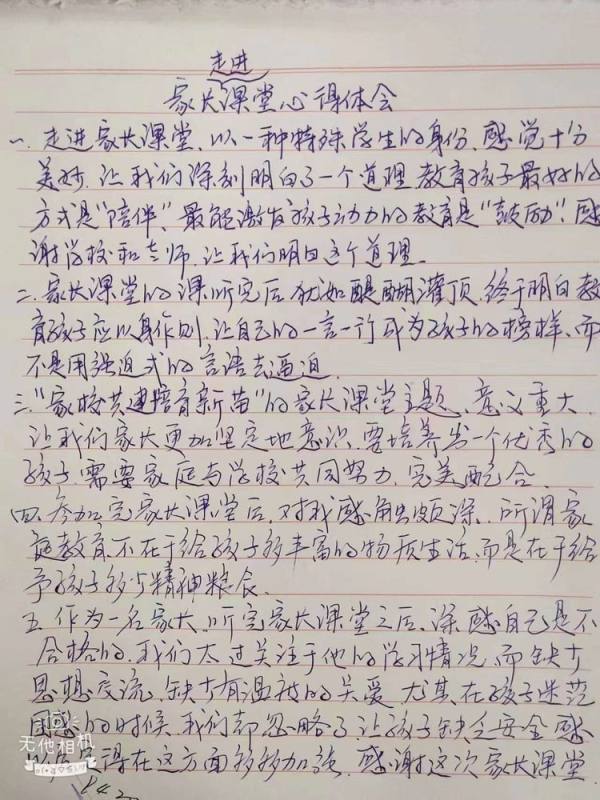 走进
家长课堂心得体会
一、走进家长课堂、以一种特殊学生的身份、感觉十分
美妙、让我们深刻明白了一个道理、教育孩子最好的
方式是“陪伴”、最能激发孩子动力的教育是“鼓励”、感
谢学校和老师、让我们明白这个道理。
二、家长课堂的课听完后、犹如醍醐灌顶、终于明白教
育孩子应以身作则、让自己的一言一行成为孩子的榜样、而
不是用强迫式的言语去逼迫
三、“家校共建培育新苗”的家长课堂主题、意义重大、
让我们家长更加坚定地意识、要培养出一个优秀的
孩子、需要家庭与学校共同努力、完美配合、
四、参加完家长课堂后、对我感触颇深、所谓家
庭教育不在于给孩子多丰富的物质生活、而是在于给
予孩子多少精神粮食、
五、作为一名家长、听完家长课堂之后、深感自己是不
合格的、我们太过关注于他的学习情况、而缺少
思想交流、缺少有温暖的关爱、尤其在孩子迷茫
困惑的时候、我们却忽略了、让孩子缺乏安全感
以后得在这方面多多加强、感谢这次家长课堂
无他相机